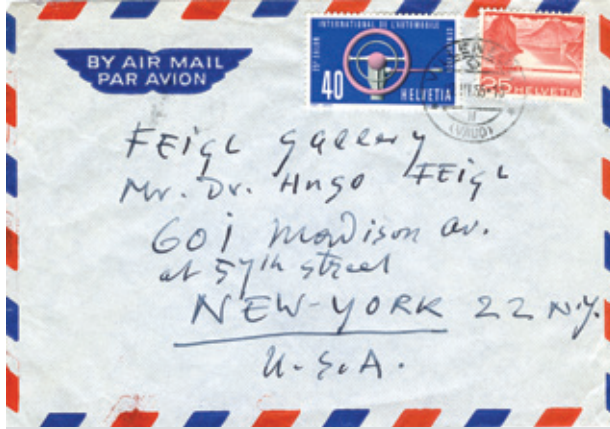 BY AIR MAIL
PAR AVION
INTERNATIONAL DE L'AUTOMOBILE
40
HELVETIA
25 HELVETIA
(VAUD)
FEIGL Gallery
Mr. Dr. Hugo FEIGL
601 Madison Av.
at 57th street
NEW-YORK 22 N.Y.
U.S.A.